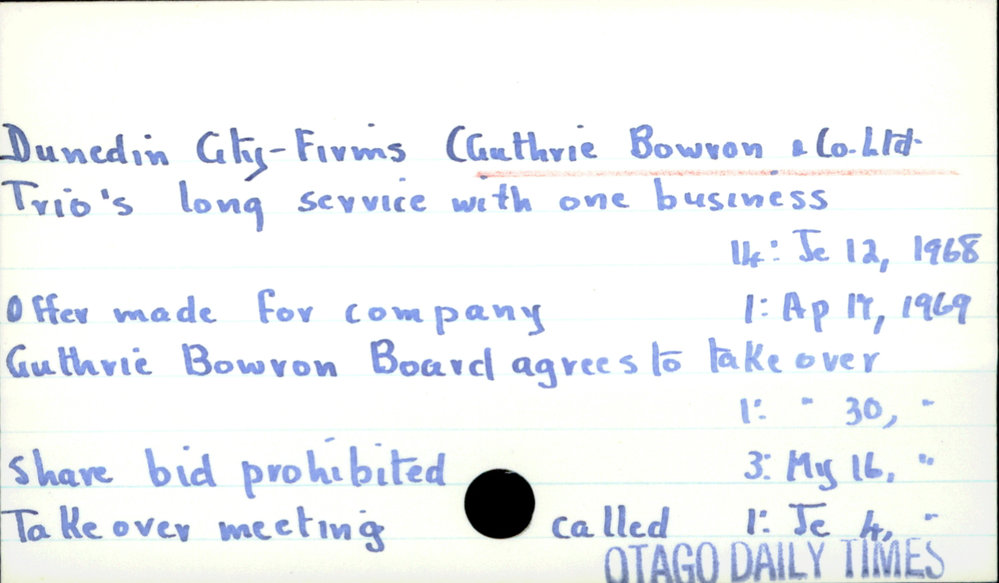 Dunedin City-Firms (Guthrie Bowron & Co. Ltd.
Trio's long service with one business
14: Je 12, 1968
Offer made for company 1: Ap 17, 1969
Guthrie Bowron Board agrees to takeover
1: " 30, "
Share bid prohibited 3: My 16, "
Takeover meeting called 1: Je 4, "
OTAGO DAILY TIMES